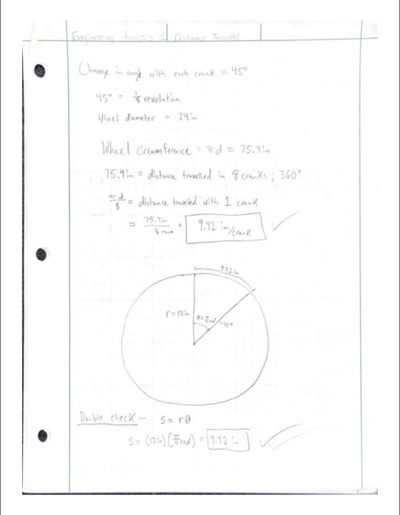 Engineering Analysis & Distance Travelled
Change in angle with each crank = 45°
45° = 1/8 revolution
Wheel diameter = 24in
Wheel circumference = πd = 75.4in
75.4in = distance travelled in 8 cranks; 360°
πd/8 = distance travelled with 1 crank
= 75.4in/8 = 9.42 in/crank
9.42in
r=12in
θ=π/4 rad
=45°
Double check - s = rθ
s = (12in)(π/4 rad) = 9.42 in